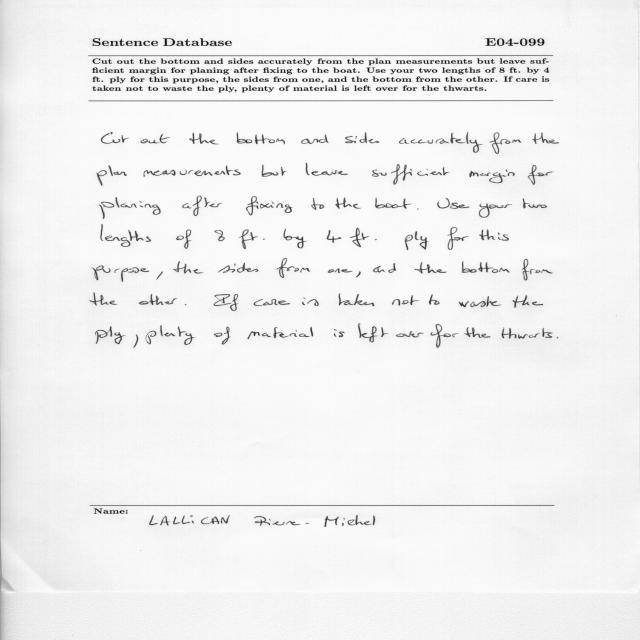 Sentence Database E04-099
Cut out the bottom and sides accurately from the plan measurements but leave suf-
ficient margin for planing after fixing to the boat. Use your two lengths of 8 ft. by 4
ft. ply for this purpose, the sides from one, and the bottom from the other. If care is
taken not to waste the ply, plenty of material is left over for the thwarts.
Cut out the bottom and sides accurately from the
plan measurements but leave sufficient margin for
planing after fixing to the boat. Use your two
lengths of 8 ft. by 4 ft. ply for this
purpose, the sides from one, and the bottom from
the other. If care is taken not to waste the
ply, plenty of material is left over for the thwarts.
Name:
LALLICAN Pierre-Michel